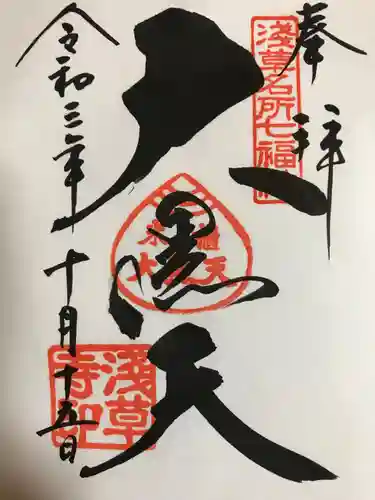 奉拝
浅草名所七福神
大黒天
浅草寺印
令和三年十月十五日